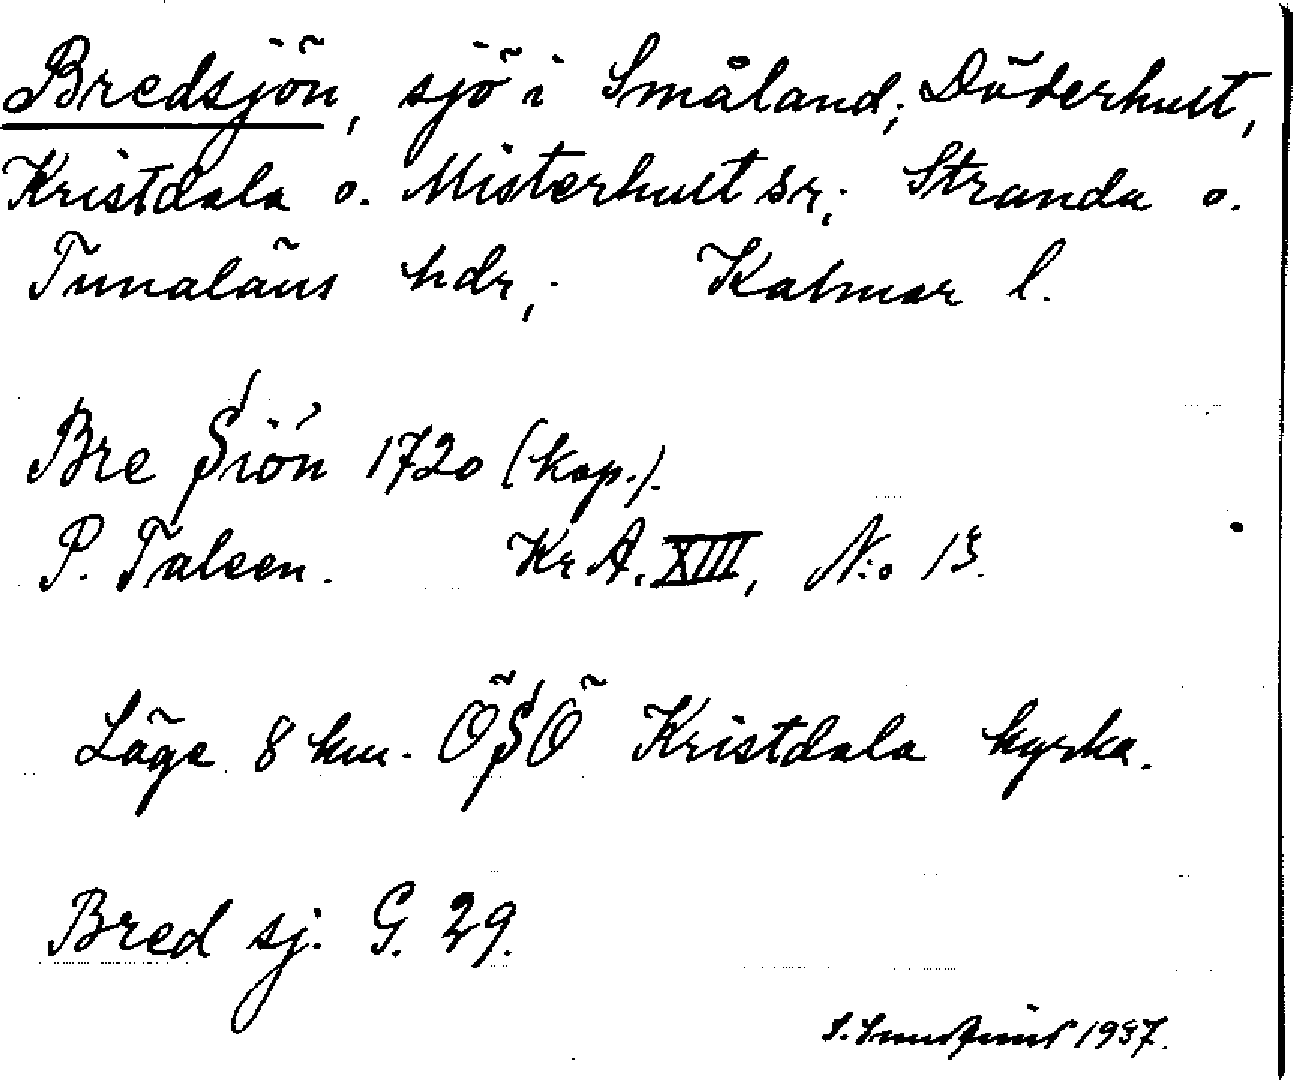 Bredsjön, sjö i Småland; Döderhult,
Kristdala o. Misterhult sr; Stranda o.
Tunaläns hdr; Kalmar l.
Bre Siön 1720 (kop.).
P. Taleen. Kr A. XIII, N:o 13.
Läge 8 km. ÖSÖ Kristdala kyrka.
Bred sj. G. 29.
1937.